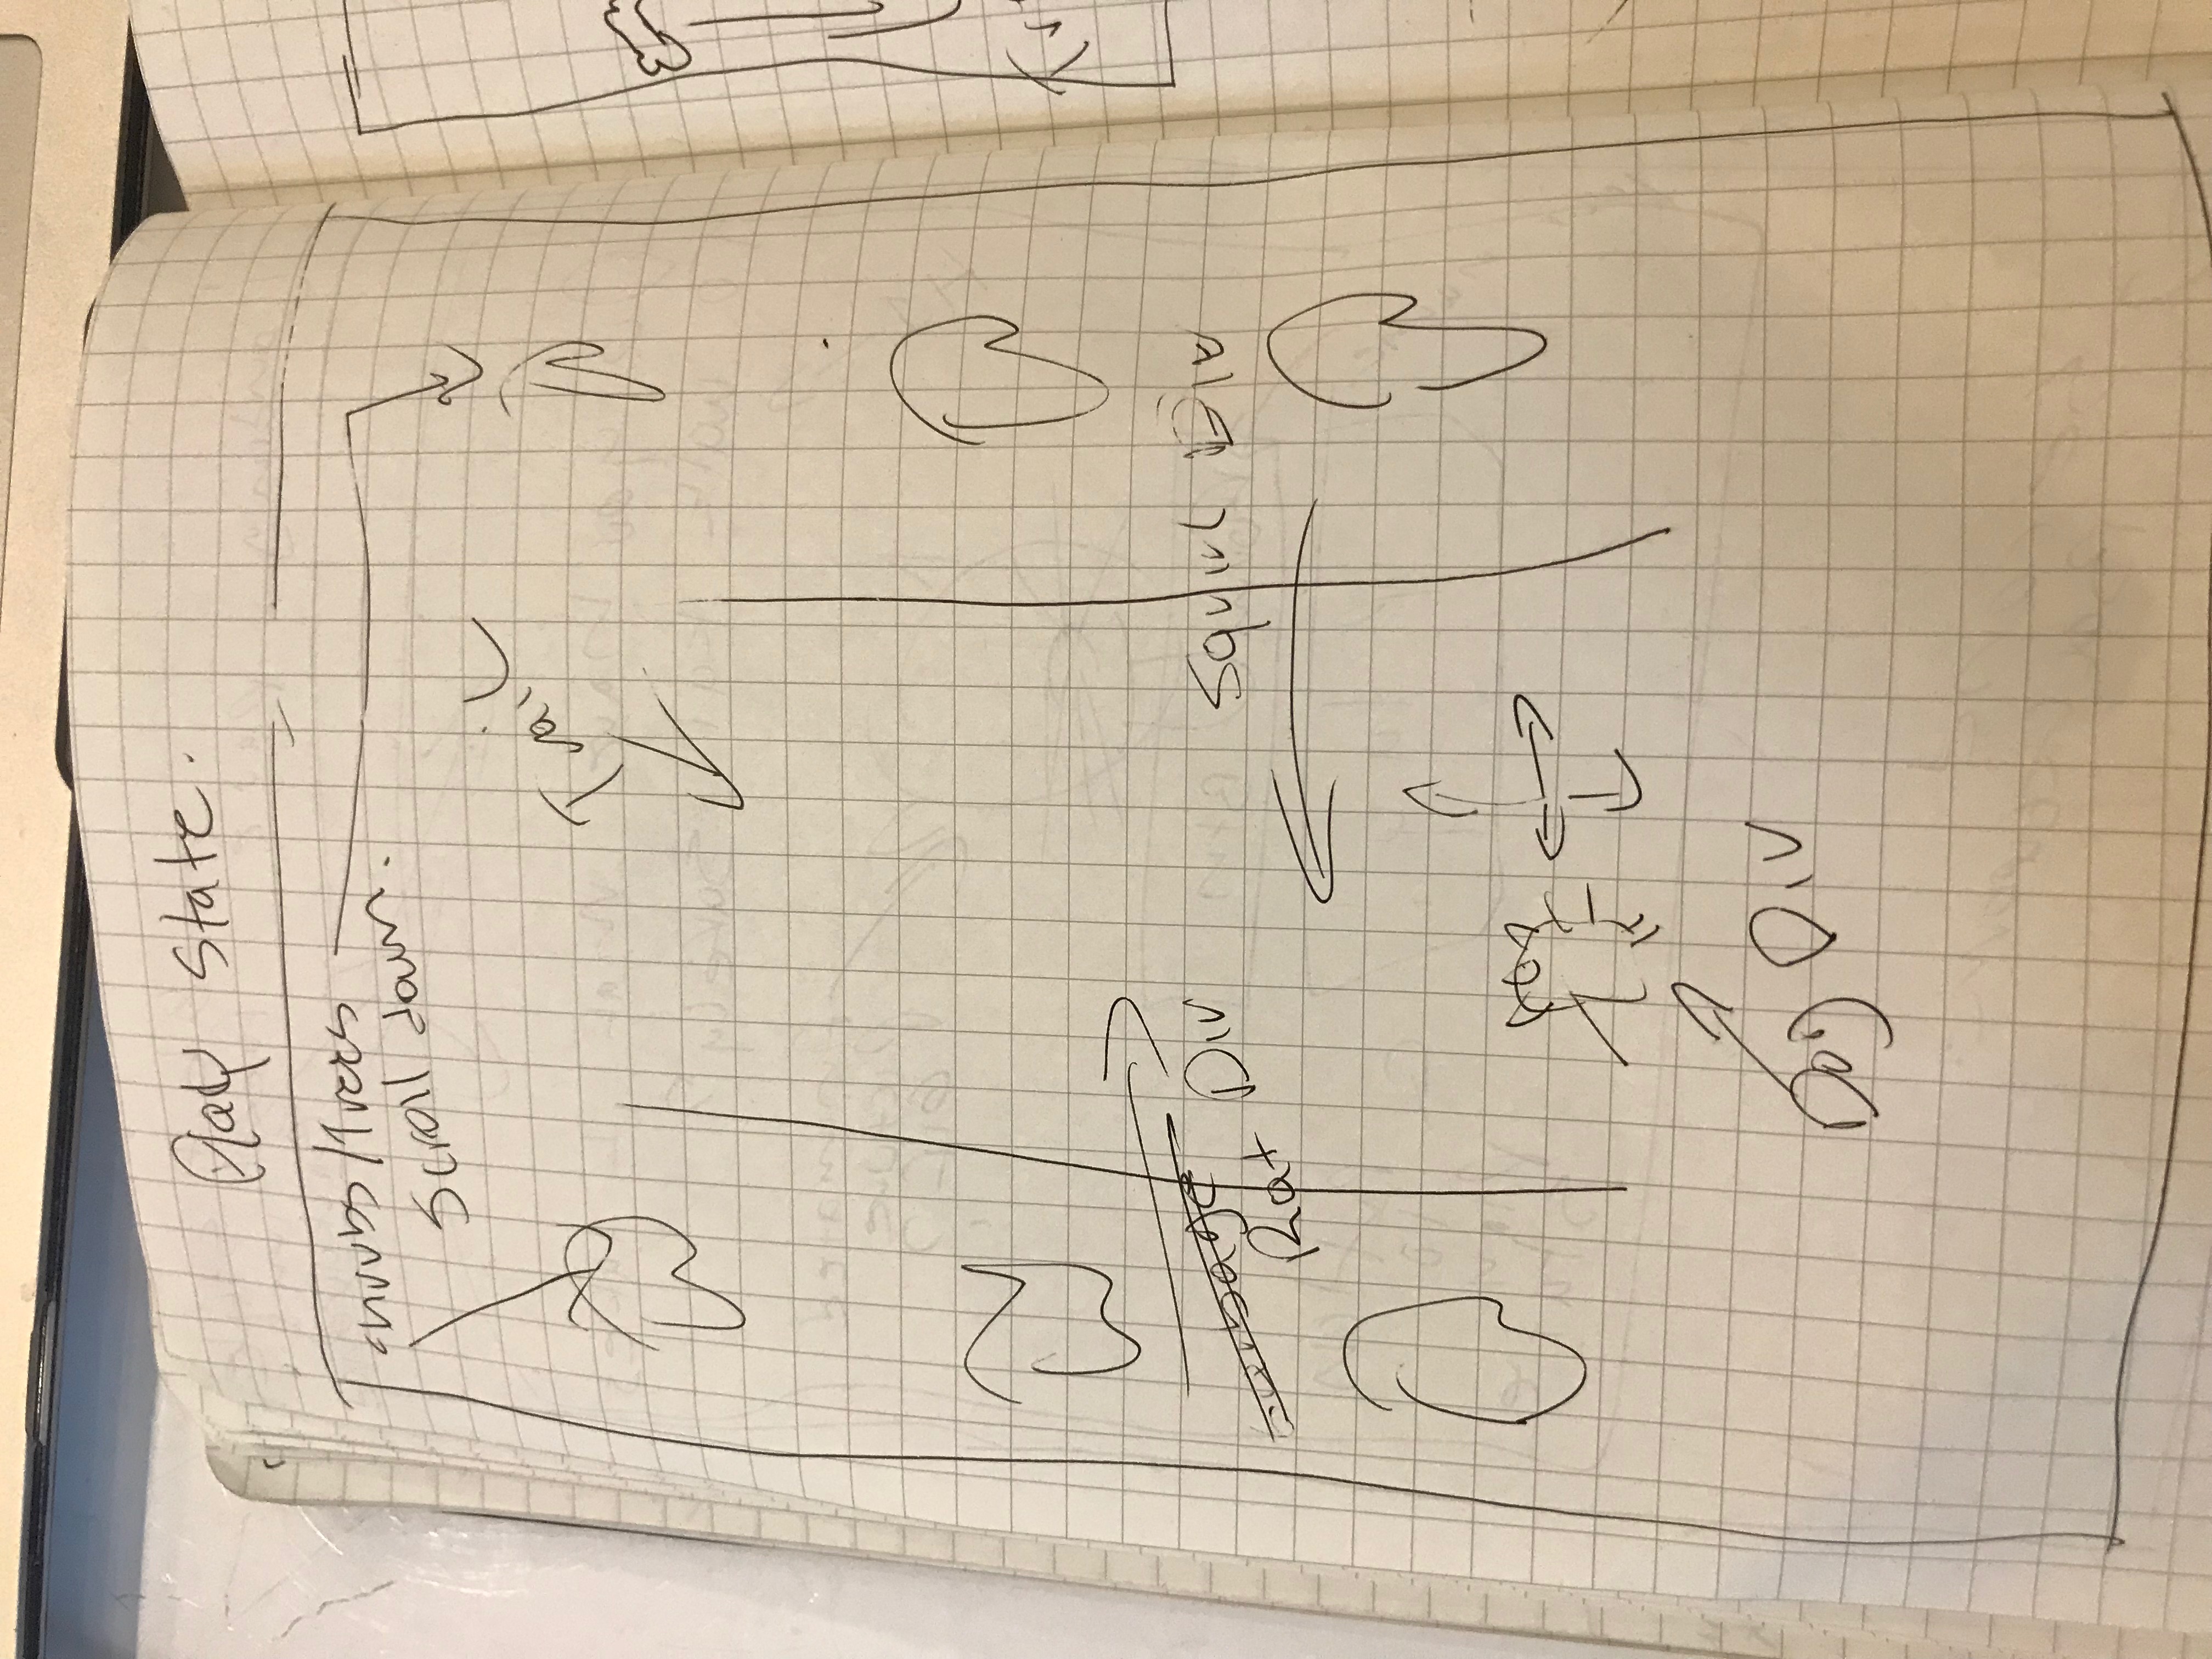 Play State.
shrubs/Trees
Scroll down.
Trail
Garbage
Rat Div
Squirl Div
Dog Div